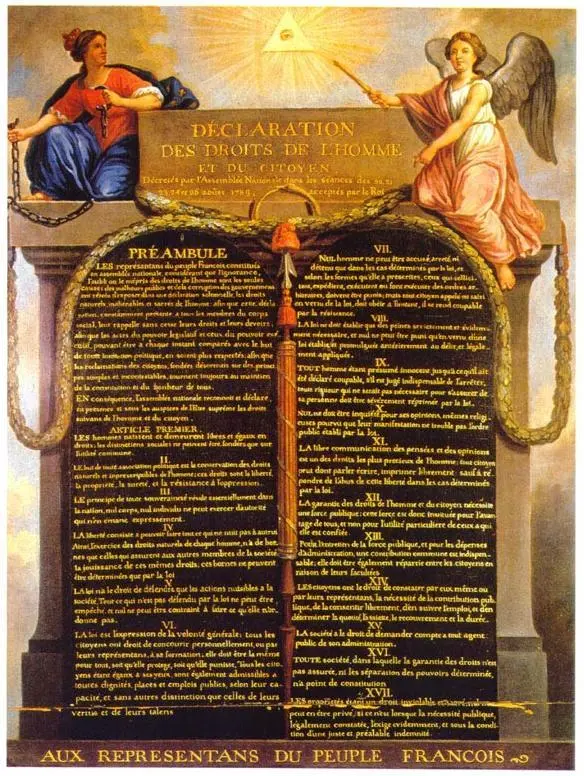 DÉCLARATION
DES DROITS DE L'HOMME
ET DU CITOYEN
Décrétés par l'Assemblée Nationale dans les séances des 20, 21
23, 24 et 26 août 1789, acceptés par le Roi
PRÉAMBULE
LES représentans du peuple François, constitués
en assemblée nationale, considérant que l'ignorance,
l'oubli ou le mépris des droits de l'homme sont les seules
causes des malheurs publics et de la corruption des gouvernemens
ont résolu d'exposer dans une déclaration solemnelle, les droits
naturels, inaliénables et sacrés de l'homme: afin que cette décla
ration, constamment présente à tous les membres du corps
social, leur rappelle sans cesse leurs droits et leurs devoirs;
afin que les actes du pouvoir législatif et ceux du pouvoir exé
cutif, pouvant être à chaque instant comparés avec le but
de toute institution politique, en soient plus respectés; afin que
les réclamations des citoyens, fondées désormais sur des princi
pes simples et incontestables, tournent toujours au maintien
de la constitution et du bonheur de tous.
EN conséquence, l'assemblée nationale reconnoit et déclare
en présence et sous les auspices de l'Être suprême les droits
suivans de l'homme et du citoyen.
ARTICLE PREMIER.
LES hommes naissent et demeurent libres et égaux en
droits; les distinctions sociales ne peuvent être fondées que sur
l'utilité commune.
II.
LE but de toute association politique est la conservation des droits
naturels et imprescriptibles de l'homme; ces droits sont la liberté,
la propriété, la sureté, et la résistance à l'oppression.
III.
LE principe de toute souveraineté réside essentiellement dans
la nation, nul corps, nul individu ne peut exercer d'autorité
qui n'en émane expressement.
IV.
LA liberté consiste à pouvoir faire tout ce qui ne nuit pas à autrui
Ainsi, l'exercice des droits naturels de chaque homme, n'a de bor
nes que celles qui assurent aux autres membres de la société
la jouissance de ces mêmes droits; ces bornes ne peuvent
être déterminées que par la loi
V.
LA loi n'a le droit de défendre que les actions nuisibles à la
société. Tout ce qui n'est pas défendu par la loi ne peut être
empêché, et nul ne peut être contraint à faire ce qu'elle n'or-
donne pas.
VI.
LA loi est l'expression de la volonté générale; tous les
citoyens ont droit de concourir personnellement, ou par
leurs représentans, à sa formation; elle doit être la même
pour tous, soit qu'elle protege, soit qu'elle punisse. Tous les cito
yens étant égaux à ses yeux, sont également admissibles à
toutes dignités, places et emplois publics, selon leur ca-
pacité, et sans autres distinction que celles de leurs
vertus et de leurs talens
VII.
NUL homme ne peut être accusé, arreté, ni
détenu que dans les cas déterminés par la loi, et
selon les formes qu'elle a prescrites, ceux qui sollici-
tent, expédient, exécutent ou font exécuter des ordres ar-
bitraires, doivent être punis; mais tout citoyen appelé ou saisi
en vertu de la loi, doit obéir à l'instant, il se rend coupable
par la résistance.
VIII.
LA loi ne doit établir que des peines strictement et évidem-
ment nécessaire, et nul ne peut être puni qu'en vertu d'une
loi établie et promulguée antérierement au délit, et légale-
ment appliquée.
IX.
TOUT homme étant présumé innocent jusqu'à ce qu'il ait
été déclaré coupable, s'il est jugé indispensable de l'arrêter,
toute rigueur qui ne serait pas nécessaire pour s'assurer de
sa personne doit être sévèrement réprimée par la loi.
X.
NUL ne doit être inquiété pour ses opinions, mêmes religi-
euses pourvu que leur manifestation ne trouble pas l'ordre
public établi par la loi.
XI.
LA libre communication des pensées et des opinions
est un des droits les plus précieux de l'homme; tout citoyen
peut donc parler, écrire, imprimer librement sauf à ré-
pondre de l'abus de cette liberté dans les cas déterminés
par la loi.
XII.
LA garantie des droits de l'homme et du citoyen nécessite
une force publique: cette force est donc instituée pour l'avan-
tage de tous, et non pour l'utilité particulière de ceux à qui
elle est confiée.
XIII.
Pour l'entretien de la force publique, et pour les dépenses
d'administration, une contribution commune est indispen-
sable; elle doit être également répartie entre les citoyens en
raison de leurs facultées.
XIV.
LES citoyens ont le droit de constater par eux même ou
par leurs représentans, la nécessité de la contribution pub-
lique, de la consentir librement, d'en suivre l'emploi, et d'en
déterminer la quotité, l'assiette, le recouvrement et la durée.
XV.
LA société a le droit de demander compte à tout agent
public de son administration.
XVI.
TOUTE société, dans laquelle la garantie des droits n'est
pas assurée, ni les séparation des pouvoirs déterminée,
n'a point de constitution.
XVII.
LES propriétés étant un droit inviolable et sacré, nul ne
peut en être privé, si ce n'est lorsque la nécessité publique,
légalement constatée, l'exige evidemment, et sous la condi-
tion d'une juste et préalable indemnité.
AUX REPRESENTANS DU PEUPLE FRANCOIS